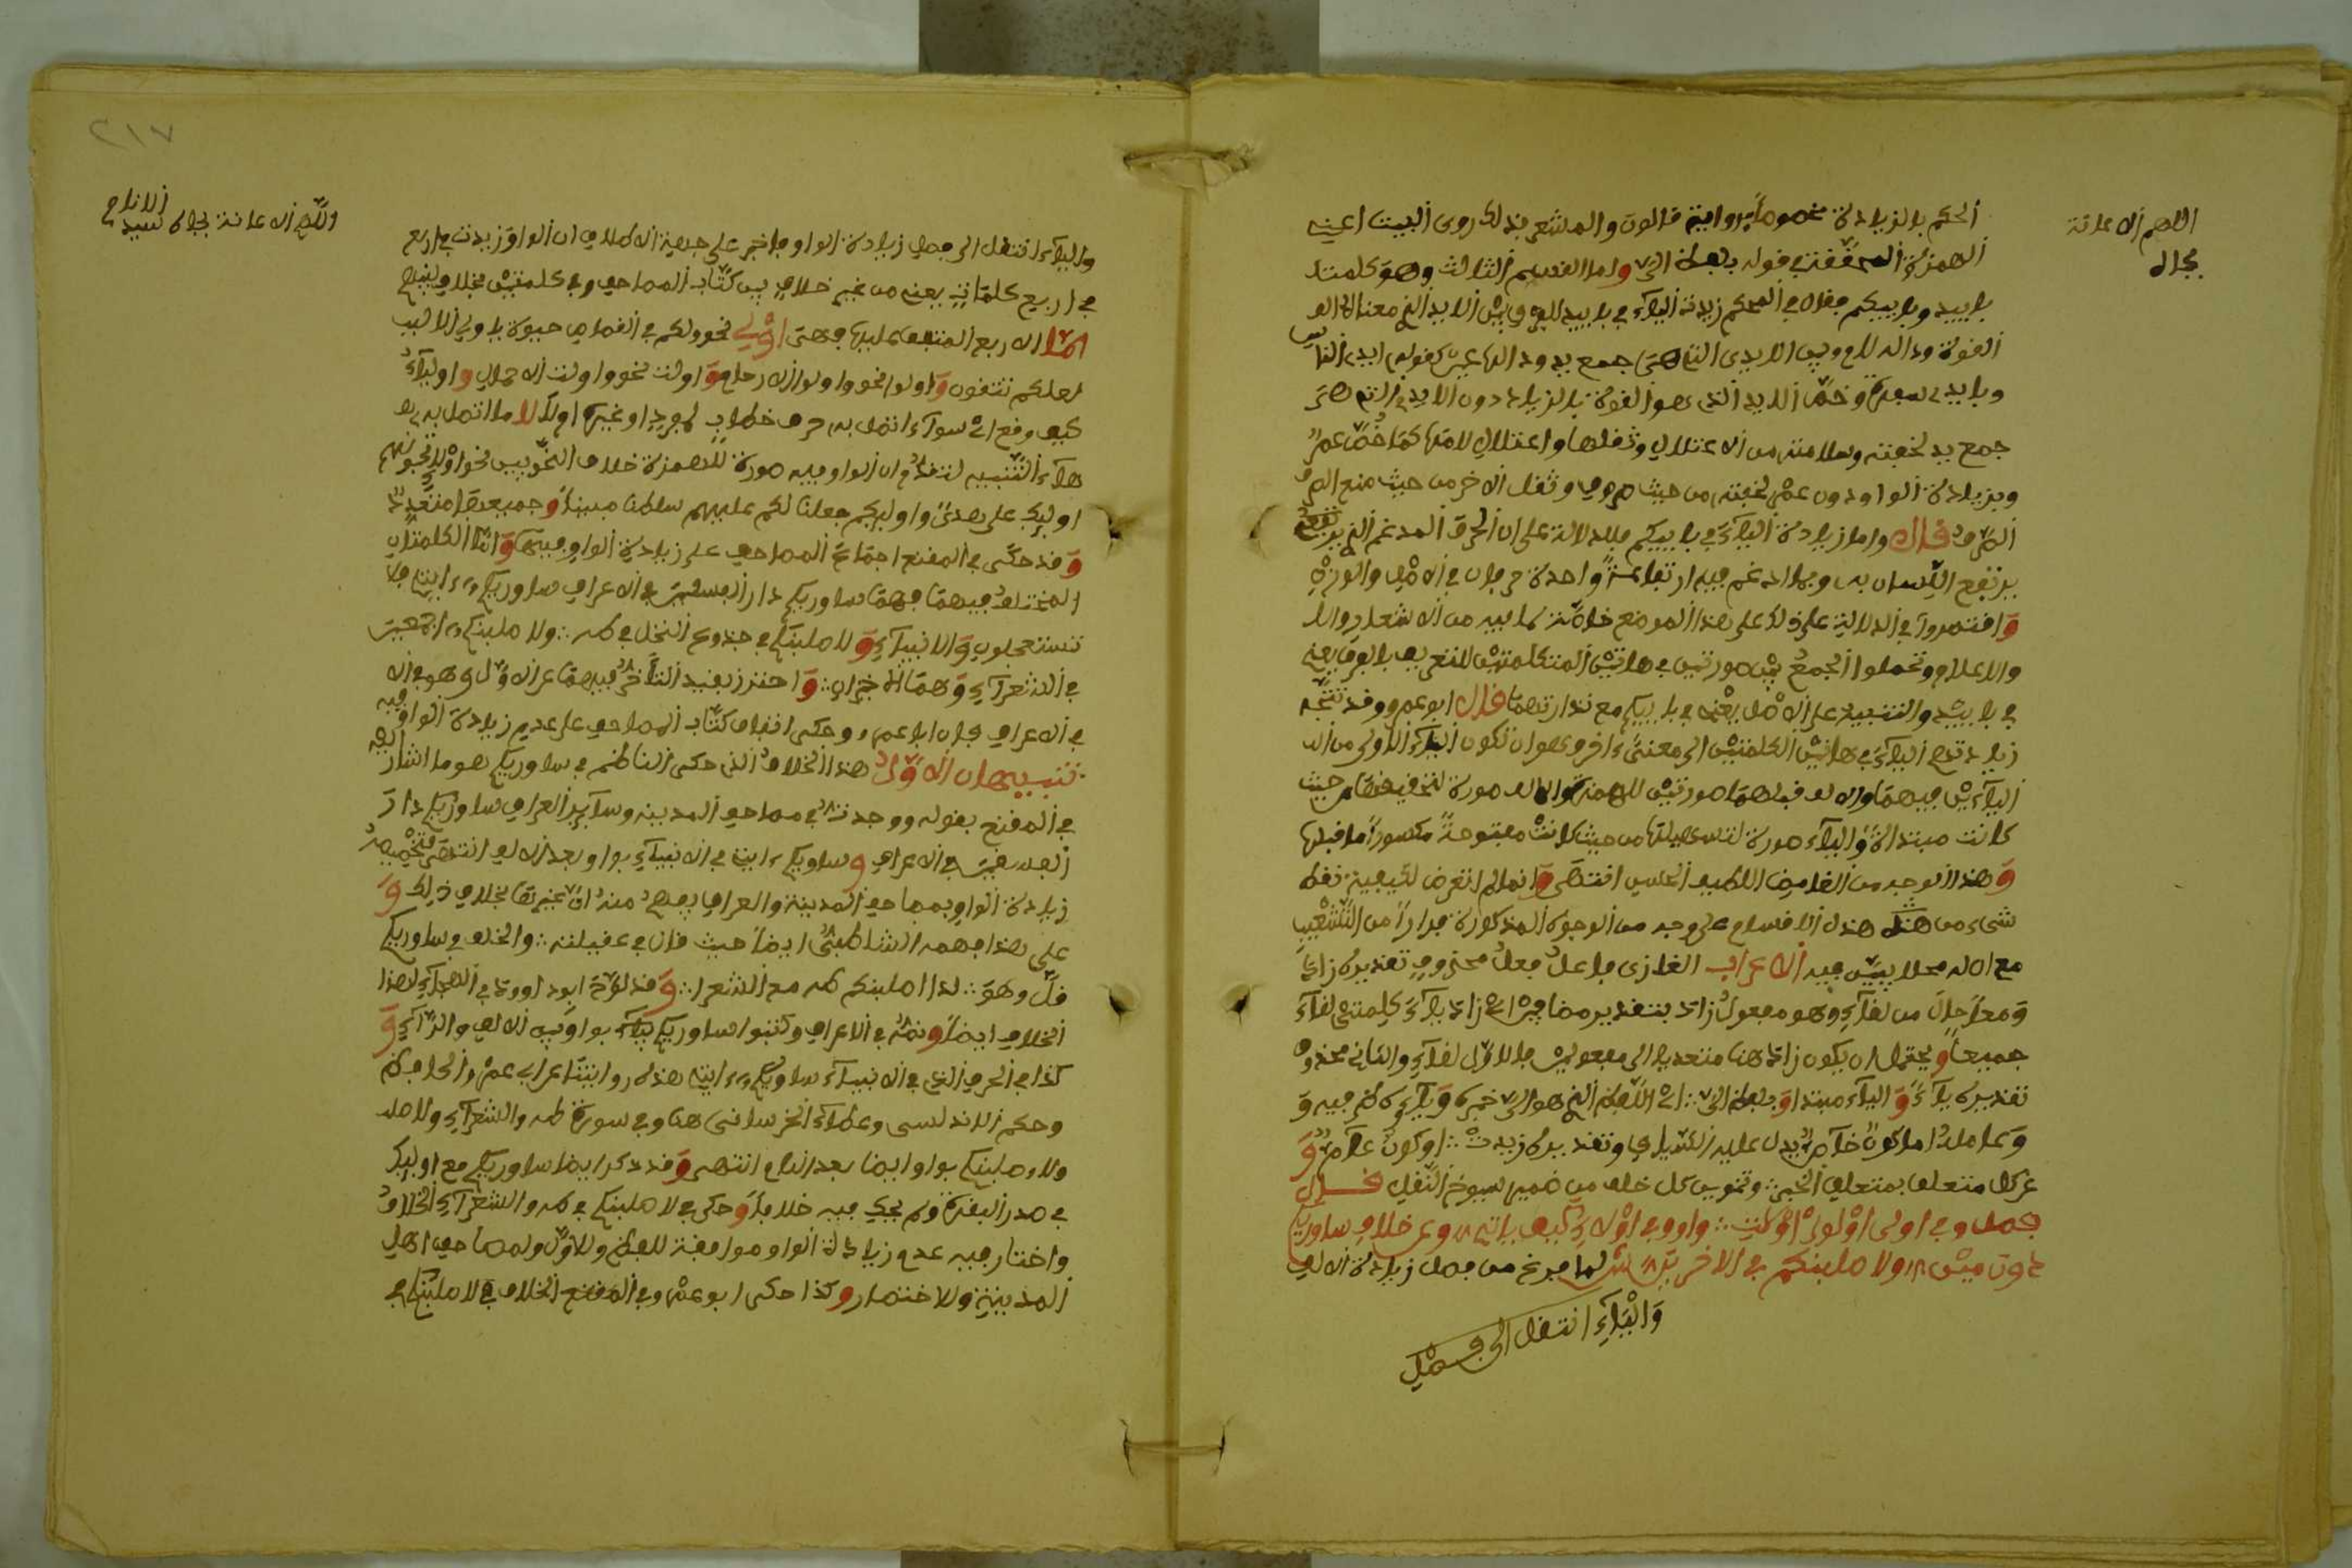 اللهم الاعانة
بجاه
الحكم بالزيادة مخصوصا برواية قالون والمشعر بذلك روى البيت اعنى
الهمزة المحققة في قوله بلفظ التى واما القسم الثالث وهو كلمتا
باييد وباييكم فقال في المحكم زيدت الياء في باييد للفرق بين الايد الذي معناه
القوة وداله لام وبين الايدى التي هي جمع يد ودالها عين كقوله ايدى الناس
وبايدى سفرة وخص الايد الذى هو القوة بالزيادة دون الايدى التي هي
جمع يد لخفته وسلامته من الاعتلال وثقلها واعتلال لامها كما خص عمرو
وبزيادة الواو دون عمر لخفته من حيث صرف وثقل الاخر من حيث منع الصرف
قال واما زيادة الياء في باييكم فللدلالة على ان الحرف المدغم الذي يرتفع
يرتفع اللسان به وبما ادغم فيه ارتفاعة واحدة حرفان في الاصل والوزن
واقتصروا في الدلالة على ذلك على هذا الموضع خاصة لما فيه من الاشعار
والاعلام
في باييد والتنبيه على الاصل يعنى في باييكم مع ندارتهما قال ابو عمرو وقد تتجه
زيادتهم الياء في هاتين الكلمتين الى معنى اخر وهو ان تكون الياء الاولى من
الياءين فيهما والالف قبلهما صورتين للهمزة والالف صورة لتحقيقها من حيث
كانت مبتداة والياء صورة لتسهيلها من حيث كانت مفتوحة مكسورا ما قبلها
وهذا الوجه من الغامض اللطيف انتهى وانما لم اتعرض لكيفية نقط
شىء من هذه الاقسام على وجه من الوجوه المذكورة فرارا من التشعيب
مع ان له محلا يبين فيه الاعراب الغازى فاعل فعل محذوف تقديره زاد
ومعا حال من لفاء وهو مفعول زاد بتقدير مضافين اى زاد ياء كلمتى لقاء
جميعا ويحتمل ان يكون زاد هنا متعديا الى مفعولين فالاول لقاء والثاني محذوف
تقديره ياء والياء مبتدا وبلفظ التى اى اللفظ الذي هو التى خبره
وعامله اما كون خاص يدل عليه السياق وتقديره زيدت او كون عام و
عن كل متعلق بمتعلق الخبر وتنوين كل خلف من ضمير لسبوع النقل قال
فصل وفى اولى اولوا اولت واوو في اولاء كيف ياتى وعن خلاف ساوريكم
دون مين ولاصلبنكم في الاخرين ش لما فرغ من فصل زيادة الالف
والياء انتقل الى فصل
٢١٧
اللهم الاعانة بجاه سيد الانام
والياء انتقل الى فصل زيادة الواو فاخبر على جهة الاطلاق ان الواو زيدت في اربع
في اربع كلمات يعنى من غير خلاف بين كتاب المصاحف وفى كلمتين بخلاف بينهم
اما الاربع المتفق عليها فهى اولى نحو ولكم في القصاص حيوة ياولى الالبب
لعلكم تتقون واولوا نحو واولوا الارحام واولت نحو واولت الاحمال واولاء
كيف وقع اى سواء اتصل به حرف خطاب لمفرد او غيره اولا لا ما اتصل به
هاء التنبيه لتقدم ان الواو فيه صورة للهمزة خلاف النحويين نحو اولاء تحبونهم
اوليك على هدى واوليكم جعلنا لكم عليهم سلطنا مبينا وجميعها متعدد
وقد حكى في المقنع اجماع المصاحف على زيادة الواو فيها واما الكلمتان
المختلف فيهما فهما ساوريكم دار الفسقين في الاعراف ساوريكم ءايتى فلا
تستعجلون والانبياء ولاصلبنكم في جذوع النخل في طه ولاصلبنكم اجمعين
في الشعراء وهما الاخيران واحترز بقيد التاخر فيهما عن الاول وهو في
في الاعراف فان ابا عمرو حكى اتفاق كتاب المصاحف على عدم زيادة الواو فيه
تنبيهان الاول هذا الخلاف الذى حكى الناظم في ساوريكم هو ما اشار اليه
في المقنع بقوله ووجدت في مصاحف المدينة وساير العراق ساوريكم دار
الفسقين في الاعراف وساوريكم ءايتى في الانبياء بواو بعد الالف انتهى فتخصيصه
زيادة الواو بمصاحف المدينة والعراق يفهم منه ان غيرها بخلاف ذلك و
على هذا فهمه الشاطبى ايضا حيث قال في عقيلته والخلف في ساوريكم
قل وهو لدا اصلبنكم طه مع الشعرا وقد لوح ابو داوود في الهجاء لهذا
الخلاف ايضا ونصه في الاعراف وكتبوا ساوريكم بواو بين الالف والراء و
كذا في الحرف الذى في الانبياء ساوريكم ءايتى هذه روايتنا عن ابى عمرو الحافظ
وحكم الاندلسى وعطاء الخرسانى هنا وفى سورة طه والشعراء ولاصلـ
ولاوصلبنكم بواو ايضا بعد الف انتهى وقد ذكر ايضا ساوريكم مع اوليك
في صدر البقرة ولم يحك فيه خلافا وحكى في لاصلبنكم في طه والشعراء الخلاف
واختار فيه عدم زيادة الواو موافقة للفظ وللاول ولمصاحف اهل
المدينة والاختصار وكذا حكى ابو عمرو في المقنع الخلاف في لاصلبنكم في